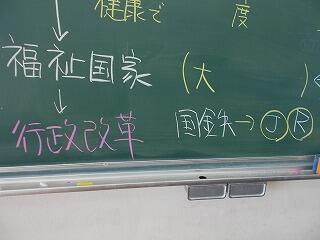 健康で 度
↓
福祉国家 (大 )←
↓
行政改革 国鉄→ⒿⓇ